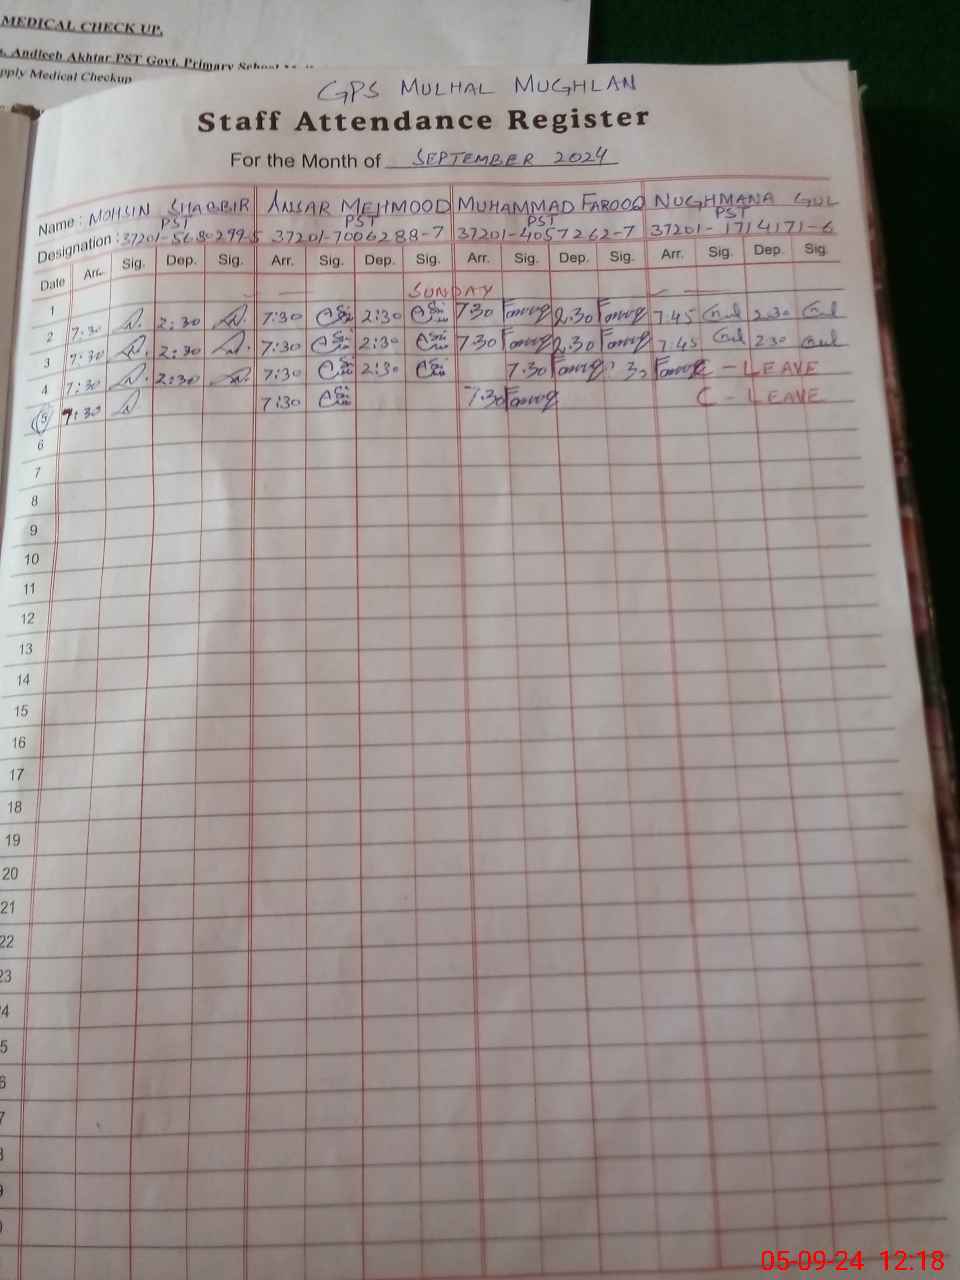 MEDICAL CHECK UP.
Andleeb Akhtar PST Govt. Primary School
pply Medical Checkup
GPS MULHAL MUGHLAN
Staff Attendance Register
For the Month of SEPTEMBER 2024
Name : MOHSIN SHABBIR ANSAR MEHMOOD MUHAMMAD FAROOQ NUGHMANA GUL
PST PST PST PST
Designation : 37201-5680299-5 37201-7006288-7 37201-4057262-7 37201-1714171-6
Date Arr. Sig. Dep. Sig. Arr. Sig. Dep. Sig. Arr. Sig. Dep. Sig. Arr. Sig. Dep. Sig.
1 SUNDAY
2 7:30 2:30 7:30 2:30 7.30 Farooq 2.30 Farooq 7:45 Gul 2 30 Gul
3 7:30 2:30 7:30 2:30 7.30 Farooq 2.30 Farooq 7:45 Gul 2 30 Gul
4 7:30 2:30 7:30 2:30 7.30 Farooq Farooq C - LEAVE
5 7:30 7:30 7.30 Farooq C - LEAVE
6
7
8
9
10
11
12
13
14
15
16
17
18
19
20
21
22
23
4
5
6
7
05-09-24 12:18